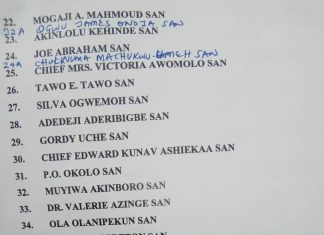 22. MOGAJI A. MAHMOUD SAN
22A OGWU JAMES ONOJA SAN
23. AKINLOLU KEHINDE SAN
24. JOE ABRAHAM SAN
24A CHUKWUMA MACHUKWU-UMEH SAN
25. CHIEF MRS. VICTORIA AWOMOLO SAN
26. TAWO E. TAWO SAN
27. SILVA OGWEMOH SAN
28. ADEDEJI ADERIBIGBE SAN
29. GORDY UCHE SAN
30. CHIEF EDWARD KUNAV ASHIEKAA SAN
31. P.O. OKOLO SAN
32. MUYIWA AKINBORO SAN
33. DR. VALERIE AZINGE SAN
34. OLA OLANIPEKUN SAN
SAN